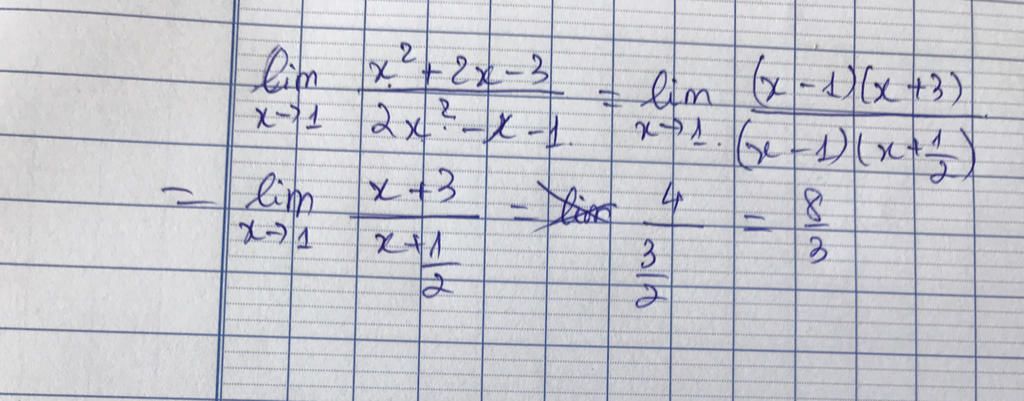 lim x→1 (x² + 2x - 3)/(2x² - x - 1) = lim x→1 ((x - 1)(x + 3))/((x - 1)(x + 1/2))
= lim x→1 (x + 3)/(x + 1/2) = 4/(3/2) = 8/3